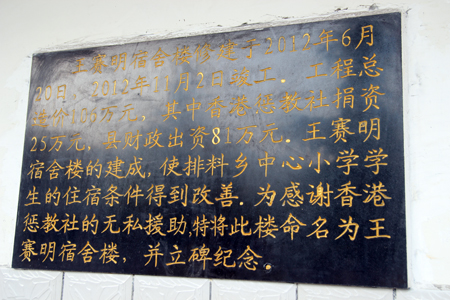 王赛明宿舍楼修建于2012年6月
20日，2012年11月2日竣工．工程总
造价106万元，其中香港惩教社捐资
25万元，县财政出资81万元．王赛明
宿舍楼的建成，使排料乡中心小学学
生的住宿条件得到改善．为感谢香港
惩教社的无私援助，特将此楼命名为王
赛明宿舍楼，并立碑纪念。